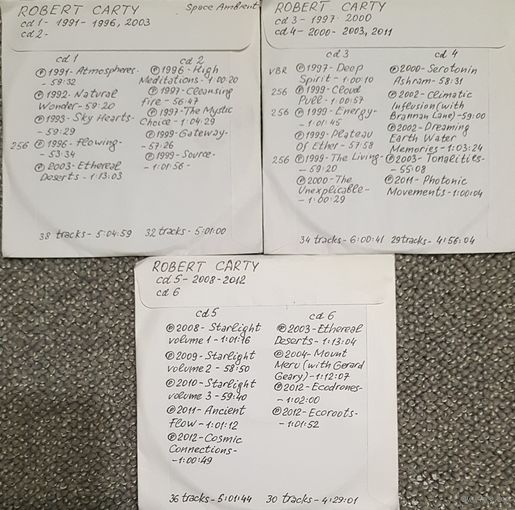 ROBERT CARTY
Space Ambient
cd 1- 1991- 1996, 2003
cd 2-
cd 1
℗ 1991- Atmospheres-
- 59:32
℗ 1992- Natural
Wonder- 59:20
℗ 1993- Sky Hearts-
- 59:29
256 ℗ 1996- Flowing-
- 53:34
℗ 2003- Ethereal
Deserts - 1:13:03
38 tracks - 5:04:59
cd 2
℗ 1996- High
Meditations- 1:00:20
℗ 1997- Cleansing
Fire - 56:47
℗ 1997- The Mystic
Choice - 1:04:29
℗ 1999- Gateway-
- 57:26
℗ 1999- Source-
- 1:01:56-
32 tracks- 5:01:00
ROBERT CARTY
cd 3 - 1997- 2000
cd 4- 2000- 2003, 2011
cd 3
VBR ℗ 1997- Deep
Spirit - 1:00:10
256 ℗ 1999- Cloud
Pull- 1:00:57
256 ℗ 1999- Energy-
- 1:01:45
℗ 1999- Plateau
Of Ether - 57:58
256 ℗ 1999- The Living-
- 59:20
℗ 2000- The
Unexplicable-
- 1:00:29
34 tracks - 6:00:41
cd 4
℗ 2000- Serotonin
Ashram- 58:31
℗ 2002- Climatic
Infusion (with
Brannan Lane)- 59:00
℗ 2002- Dreaming
Earth Water
Memories - 1:03:24
℗ 2003- Tonalities-
- 55:08
℗ 2011- Photonic
Movements- 1:00:04
29 tracks- 4:56:04
ROBERT CARTY
cd 5- 2008-2012
cd 6
cd 5
℗ 2008- Starlight
volume 1 - 1:01:16
℗ 2009- Starlight
volume 2 - 58:50
℗ 2010- Starlight
volume 3 - 59:40
℗ 2011- Ancient
Flow - 1:01:12
℗ 2012- Cosmic
Connections-
- 1:00:49
36 tracks - 5:01:44
cd 6
℗ 2003- Ethereal
Deserts - 1:13:04
℗ 2004- Mount
Meru (with Gerard
Geary) - 1:12:07
℗ 2012- Ecodrones-
- 1:02:00
℗ 2012- Ecoroots-
- 1:01:52
30 tracks - 4:29:01